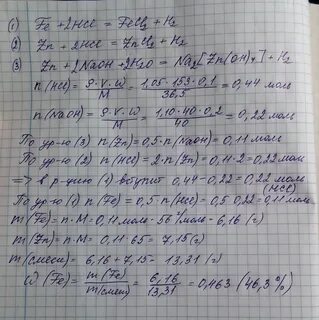 (1) Fe + 2HCl = FeCl₂ + H₂
(2) Zn + 2HCl = ZnCl₂ + H₂
(3) Zn + 2NaOH + 2H₂O = Na₂[Zn(OH)₄] + H₂
n(HCl) = ρ·V·ω/M = 1,05·153·0,1/36,5 = 0,44 моль
n(NaOH) = ρ·V·ω/M = 1,10·40·0,2/40 = 0,22 моль
По ур-ю (3) n(Zn) = 0,5·n(NaOH) = 0,11 моль
По ур-ю (2) n(HCl) = 2·n(Zn) = 0,11·2 = 0,22 моль
=> в р-цию (1) вступит 0,44-0,22 = 0,22 моль (HCl)
По ур-ю (1) n(Fe) = 0,5·n(HCl) = 0,5·0,22 = 0,11 моль
m(Fe) = n·M = 0,11 моль·56 г/моль = 6,16 (г)
m(Zn) = n·M = 0,11·65 = 7,15 (г)
m(смеси) = 6,16 + 7,15 = 13,31 (г)
ω(Fe) = m(Fe)/m(смеси) = 6,16/13,31 = 0,463 (46,3%)